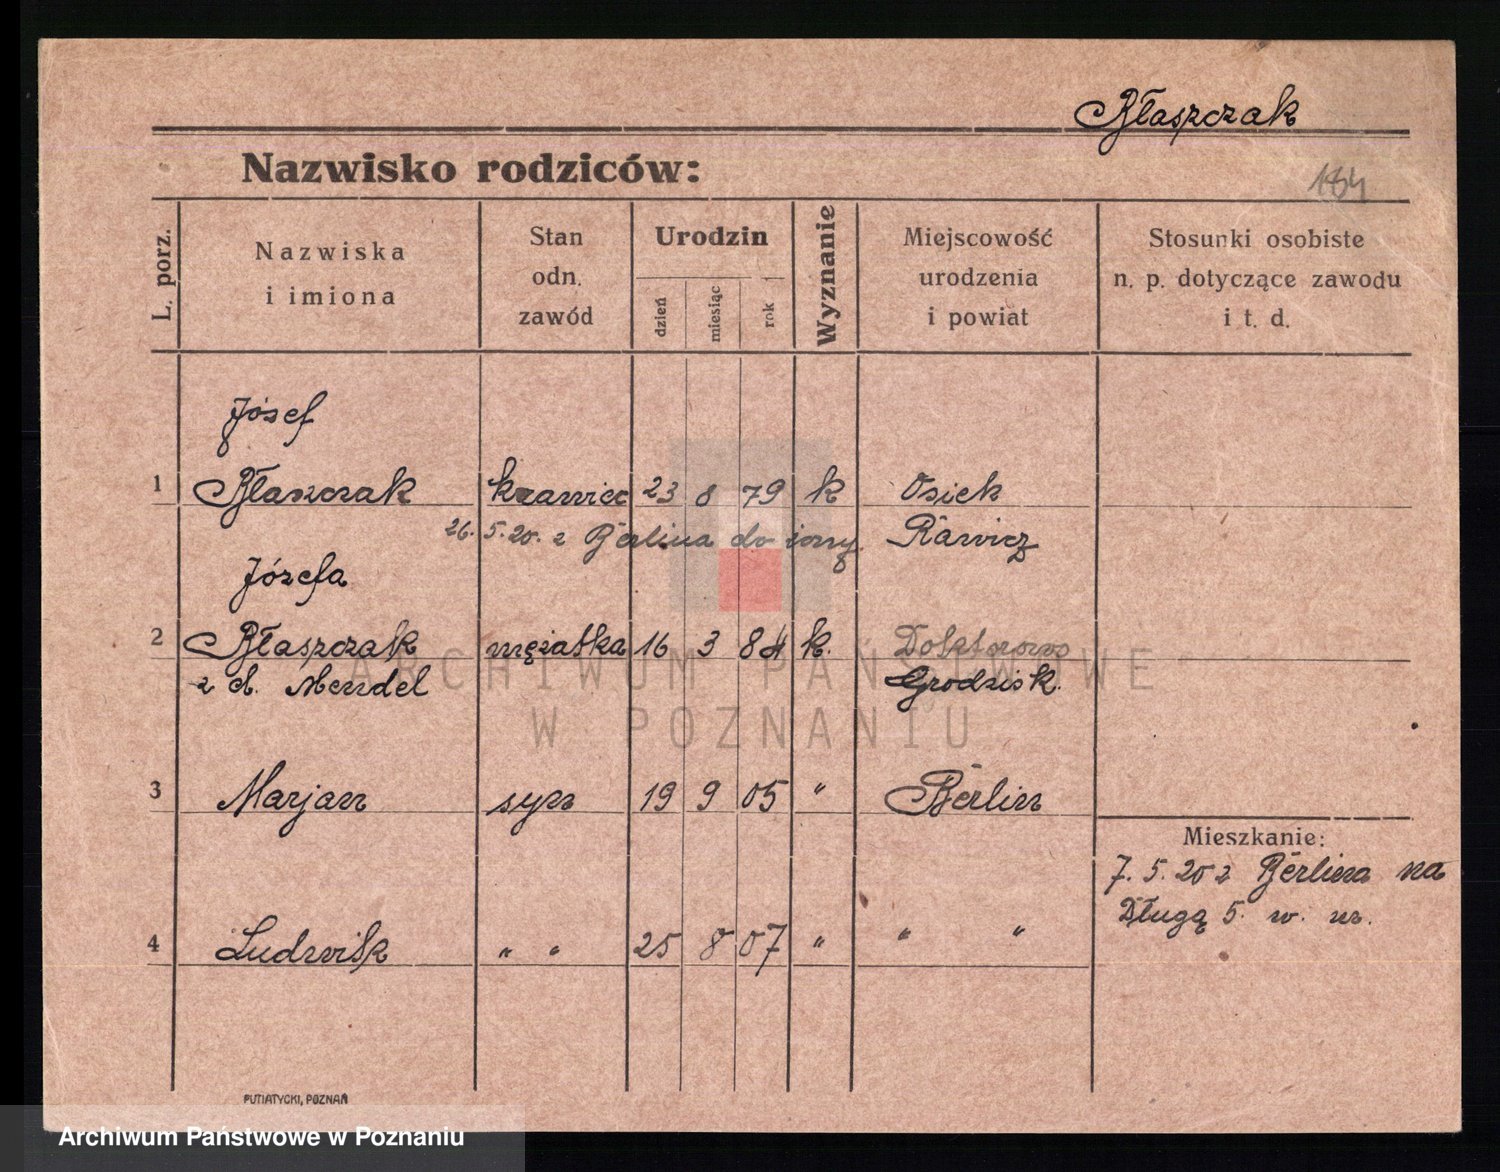 Błaszczak
Nazwisko rodziców:
184
L. porz.
Nazwiska
i imiona
Stan
odn.
zawód
Urodzin
dzień
miesiąc
rok
Wyznanie
Miejscowość
urodzenia
i powiat
Stosunki osobiste
n. p. dotyczące zawodu
i t. d.
Józef
1 Błaszczak krawiec 23 8 79 k Osiek
26. 5. 20. z Berlina do żony. Rawicz
Józefa
2 Błaszczak mężatka 16 3 84 k.
z d. Mendel Grodzisk.
3 Marjan syn 19 9 05 " Berlin
Mieszkanie:
7. 5. 20 z Berlina na
Długą 5. w. m.
4 Ludwik " " 25 8 07 " " "
PUTIATYCKI, POZNAŃ
ARCHIWUM PAŃSTWOWE
W POZNANIU
Archiwum Państwowe w Poznaniu